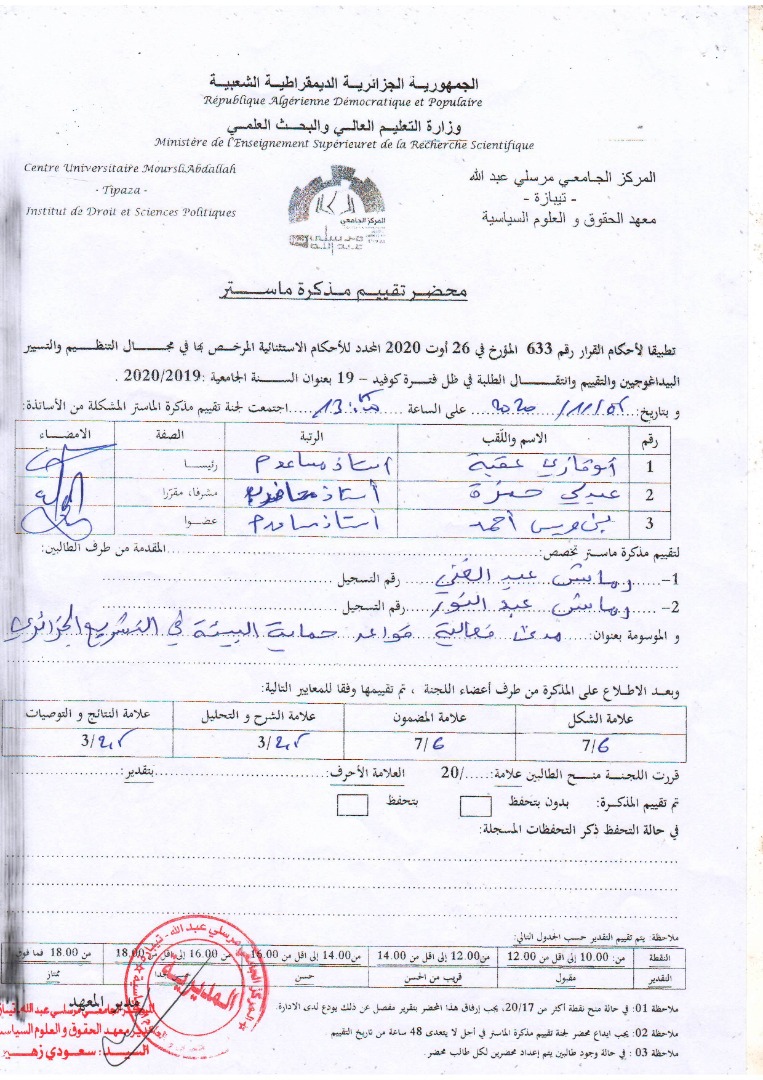 الجمهورية الجزائرية الديمقراطية الشعبية
République Algérienne Démocratique et Populaire
وزارة التعليم العالي والبحث العلمي
Ministère de l'Enseignement Supérieuret de la Recherche Scientifique
Centre Universitaire Moursli.Abdallah
- Tipaza -
Institut de Droit et Sciences Politiques
المركز الجامعي مرسلي عبد الله
- تيبازة -
معهد الحقوق و العلوم السياسية
المركز الجامعي
مرسلي عبد الله
محضر تقييم مذكرة ماستر
تطبيقا لأحكام القرار رقم 633 المؤرخ في 26 أوت 2020 المحدد للأحكام الاستثنائية المرخص بها في مجال التنظيم والتسيير
البيداغوجيين والتقييم وانتقال الطلبة في ظل فترة كوفيد – 19 بعنوان السنة الجامعية :2020/2019 .
و بتاريخ: 2020/11/05 على الساعة 13:00 اجتمعت لجنة تقييم مذكرة الماستر المشكلة من الأساتذة:
رقم الاسم واللّقب الرتبة الصفة الامضاء
1 عقبة أستاذ مساعد م رئيسا
2 عبدلي حمزة أستاذ محاضر ب مشرفا، مقرّرا
3 أحمد أستاذ مساعد م عضوا
لتقييم مذكرة ماستر تخصص: المقدمة من طرف الطالبين:
1- عبد الغني رقم التسجيل
2- عبد النور رقم التسجيل
و الموسومة بعنوان: مدى فعالية قواعد حماية البيئة في التشريع الجزائري
وبعد الاطلاع على المذكرة من طرف أعضاء اللجنة ، تم تقييمها وفقا للمعايير التالية:
علامة الشكل علامة المضمون علامة الشرح و التحليل علامة النتائج و التوصيات
7/6 7/6 3/2.5 3/2.5
قررت اللجنة منح الطالبين علامة:...../20 العلامة الأحرف: بتقدير:
تم تقييم المذكرة: بدون بتحفظ بتحفظ
في حالة التحفظ ذكر التحفظات المسجلة:
ملاحظة: يتم تقييم التقدير حسب الجدول التالي:
النقطة من: 10.00 إلى اقل من 12.00 من12.00 إلى اقل من 14.00 من14.00 إلى اقل من 16.00 من 16.00 إلى اقل من 18.00 من 18.00 فما فوق
التقدير مقبول قريب من الحسن حسن جدا ممتاز
ملاحظة 01: في حالة منح نقطة أكثر من 20/17، يجب إرفاق هذا المحضر بتقرير مفصل عن ذلك يودع لدى الادارة.
ملاحظة 02: يجب ايداع محضر لجنة تقييم مذكرة الماستر في أجل لا يتعدى 48 ساعة من تاريخ التقييم
ملاحظة 03 : في حالة وجود طالبين يتم إعداد محضرين لكل طالب محضر.
مدير المعهد
المركز الجامعي مرسلي عبد الله تيبازة
مدير معهد الحقوق و العلوم السياسية
السيد: سعودي زهير
المديرية
المركز الجامعي مرسلي عبد الله - تيبازة